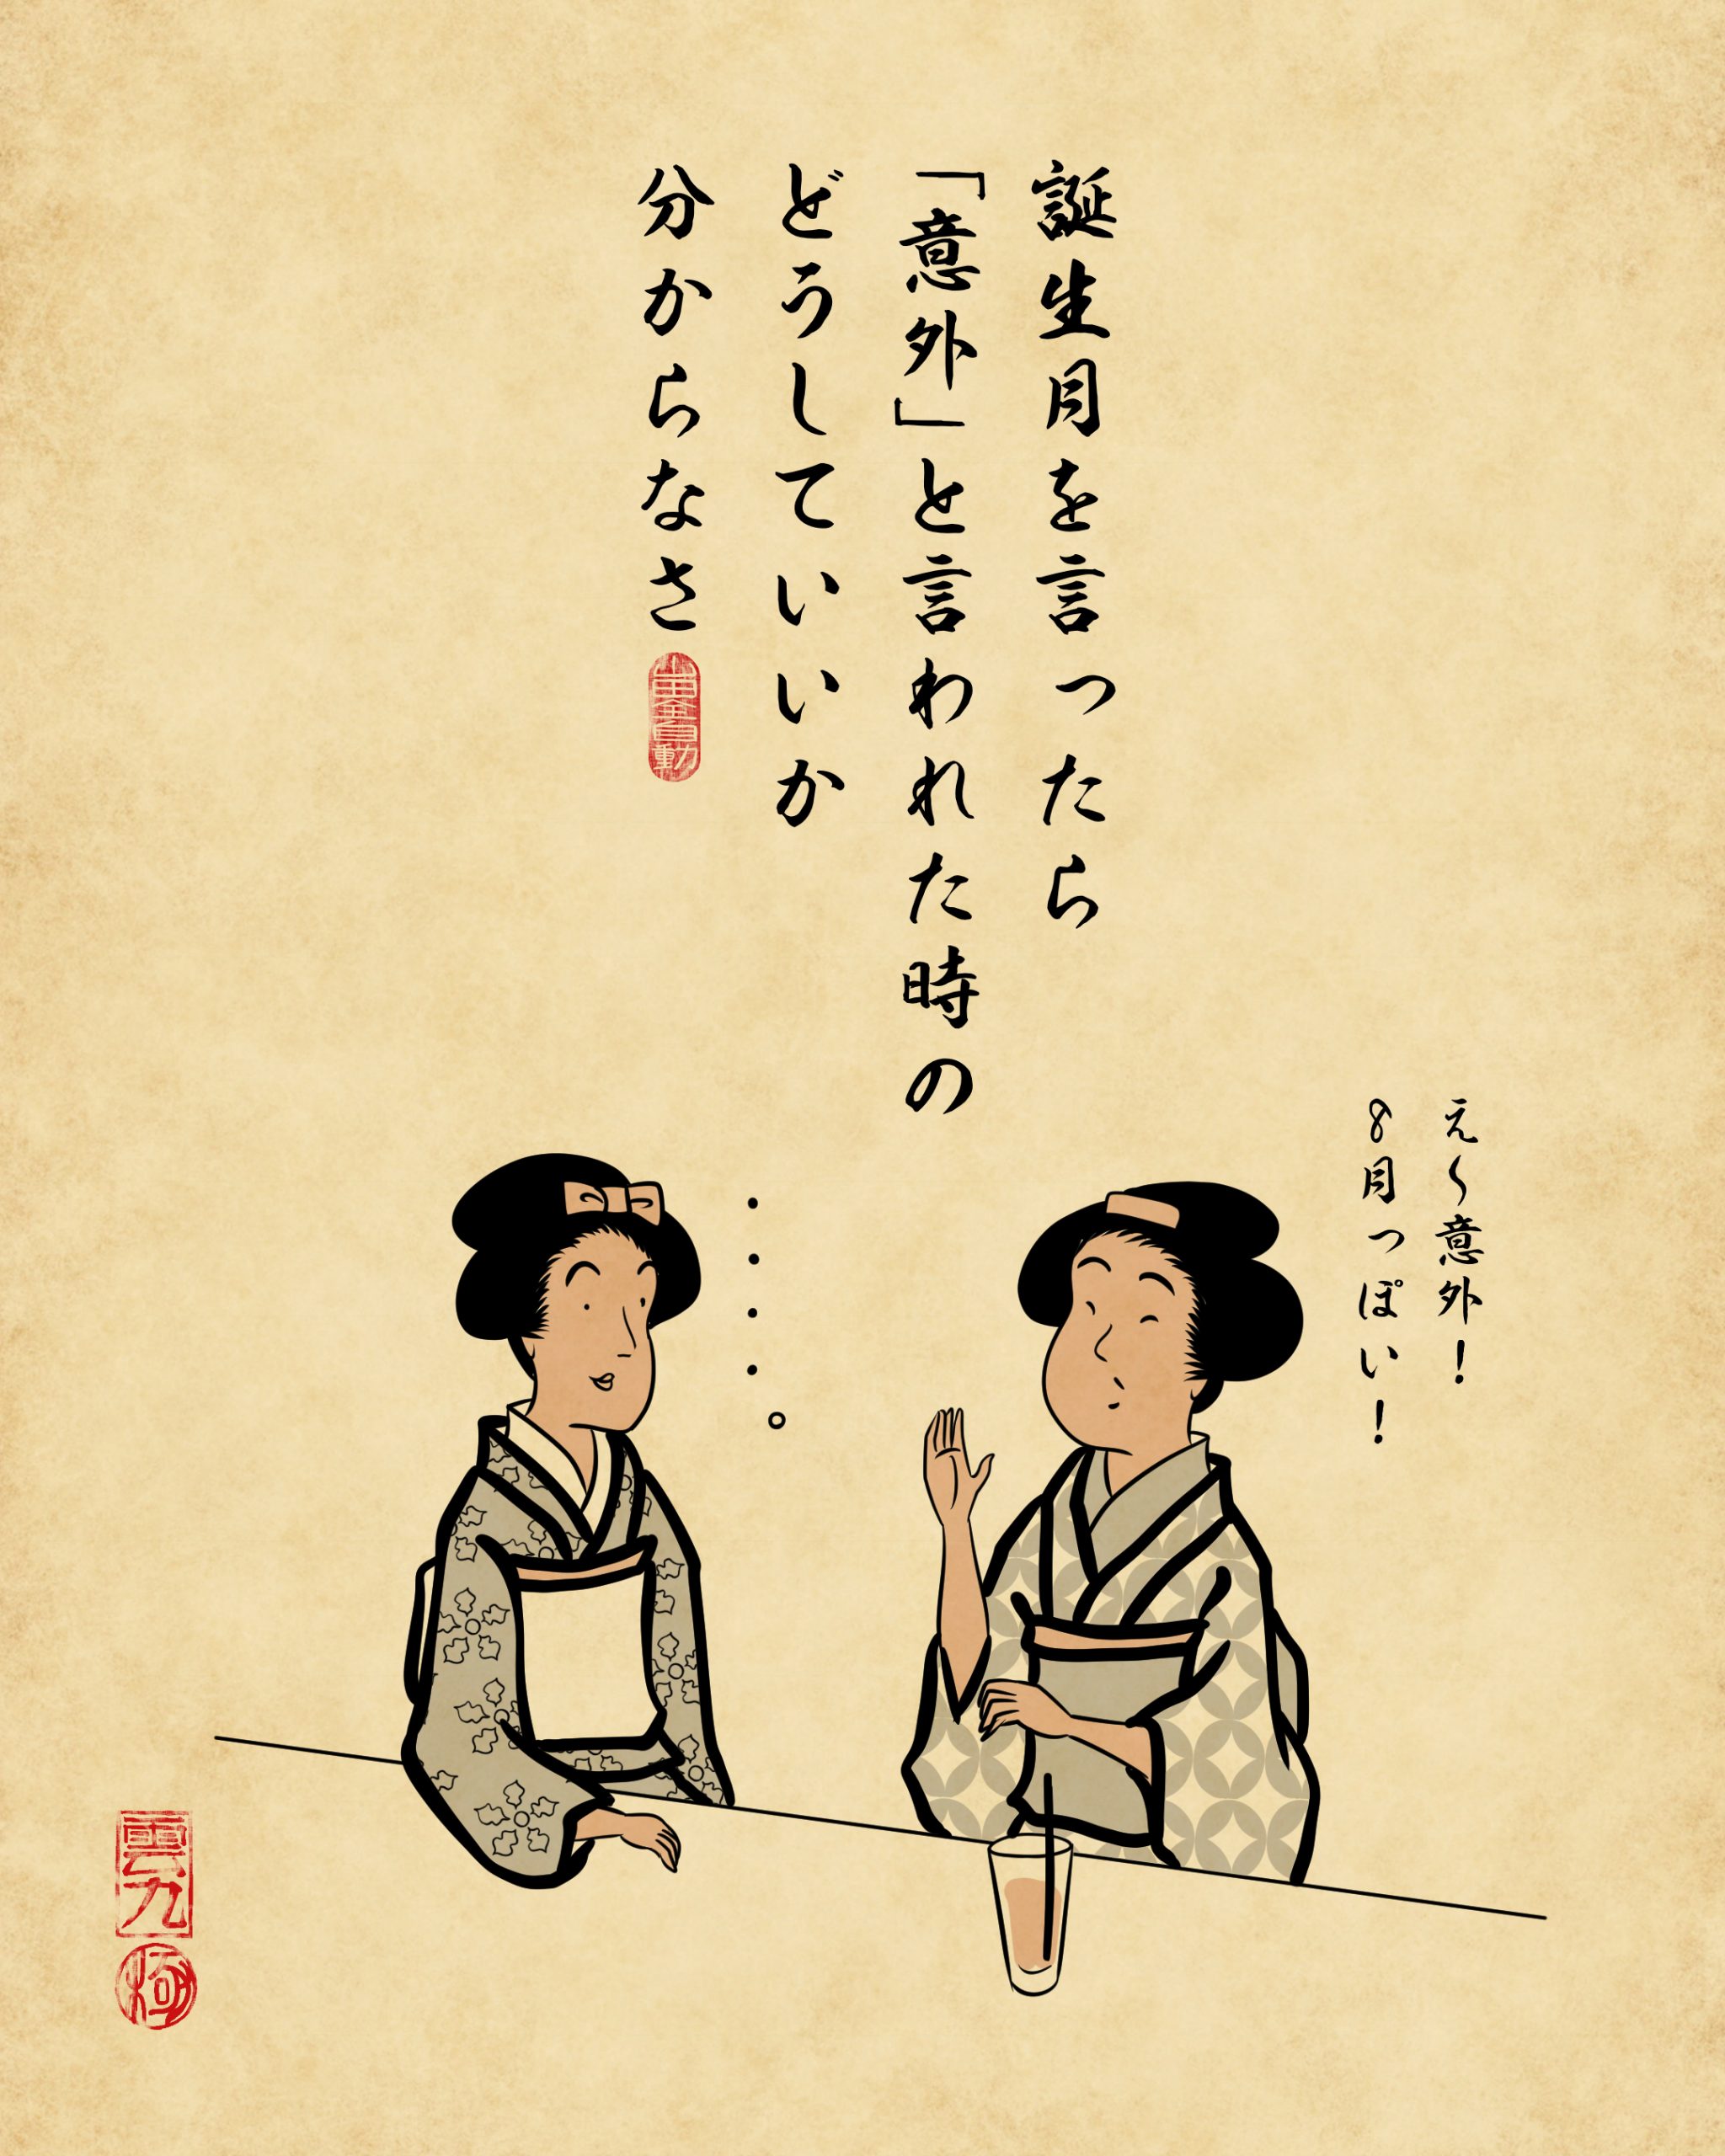 誕生月を言ったら
「意外」と言われた時の
どうしていいか
分からなさ
え〜意外！
8月っぽい！
・・・・。
雲九
極